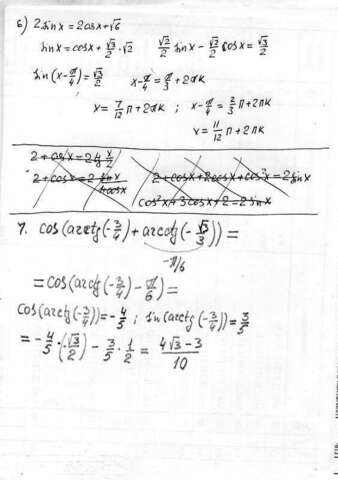 6) 2sinx = 2cosx + √6
sinx = cosx + √3/2 · √2   √2/2 sinx - √2/2 cosx = √3/2
sin(x - π/4) = √3/2   x - π/4 = π/3 + 2πk
x = 7/12 π + 2πk ; x - π/4 = 2/3 π + 2πk
x = 11/12 π + 2πk
2 + cosx = 2 tg x/2
2 + cosx = 2   2 + cosx + 2cosx + cos²x = 2sinx
cos²x + 3cosx + 2 = 2sinx
7. cos(arctg(-3/4) + arcctg(-√3/3)) =
-π/6
= cos(arctg(-3/4) - π/6) =
cos(arctg(-3/4)) = -4/5 ; sin(arctg(-3/4)) = 3/5
= -4/5 · (-√3/2) - 3/5 · 1/2 = (4√3 - 3)/10